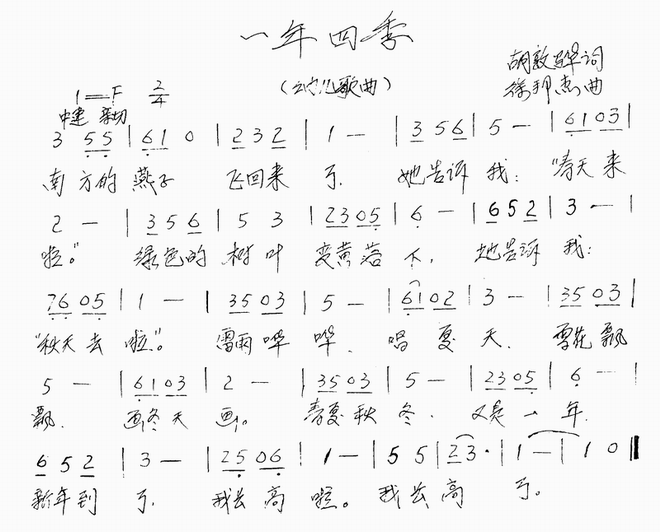 一年四季
（幼儿歌曲）
胡敦骅词
徐邦杰曲
1=F 2/4
中速 亲切
3 55 | 61 0 | 232 | 1 — | 356 | 5 — | 6103 |
南方的燕子 飞回来了. 她告诉我: “春天来
2 — | 356 | 5 3 | 2305 | 6 — | 652 | 3 — |
啦”。 绿色的树叶 变黄落下, 她告诉我:
7605 | 1 — | 3503 | 5 — | 6102 | 3 — | 3503 |
“秋天去啦”。 雷雨哗哗. 唱夏天. 雪花飘
5 — | 6103 | 2 — | 3503 | 5 — | 2305 | 6 — |
飘. 画冬天画。 春夏秋冬. 又是一年.
652 | 3 — | 2506 | 1 — | 55 | 23· | 1 — | 1 0 ‖
新年到了. 我长高啦。我长高了。